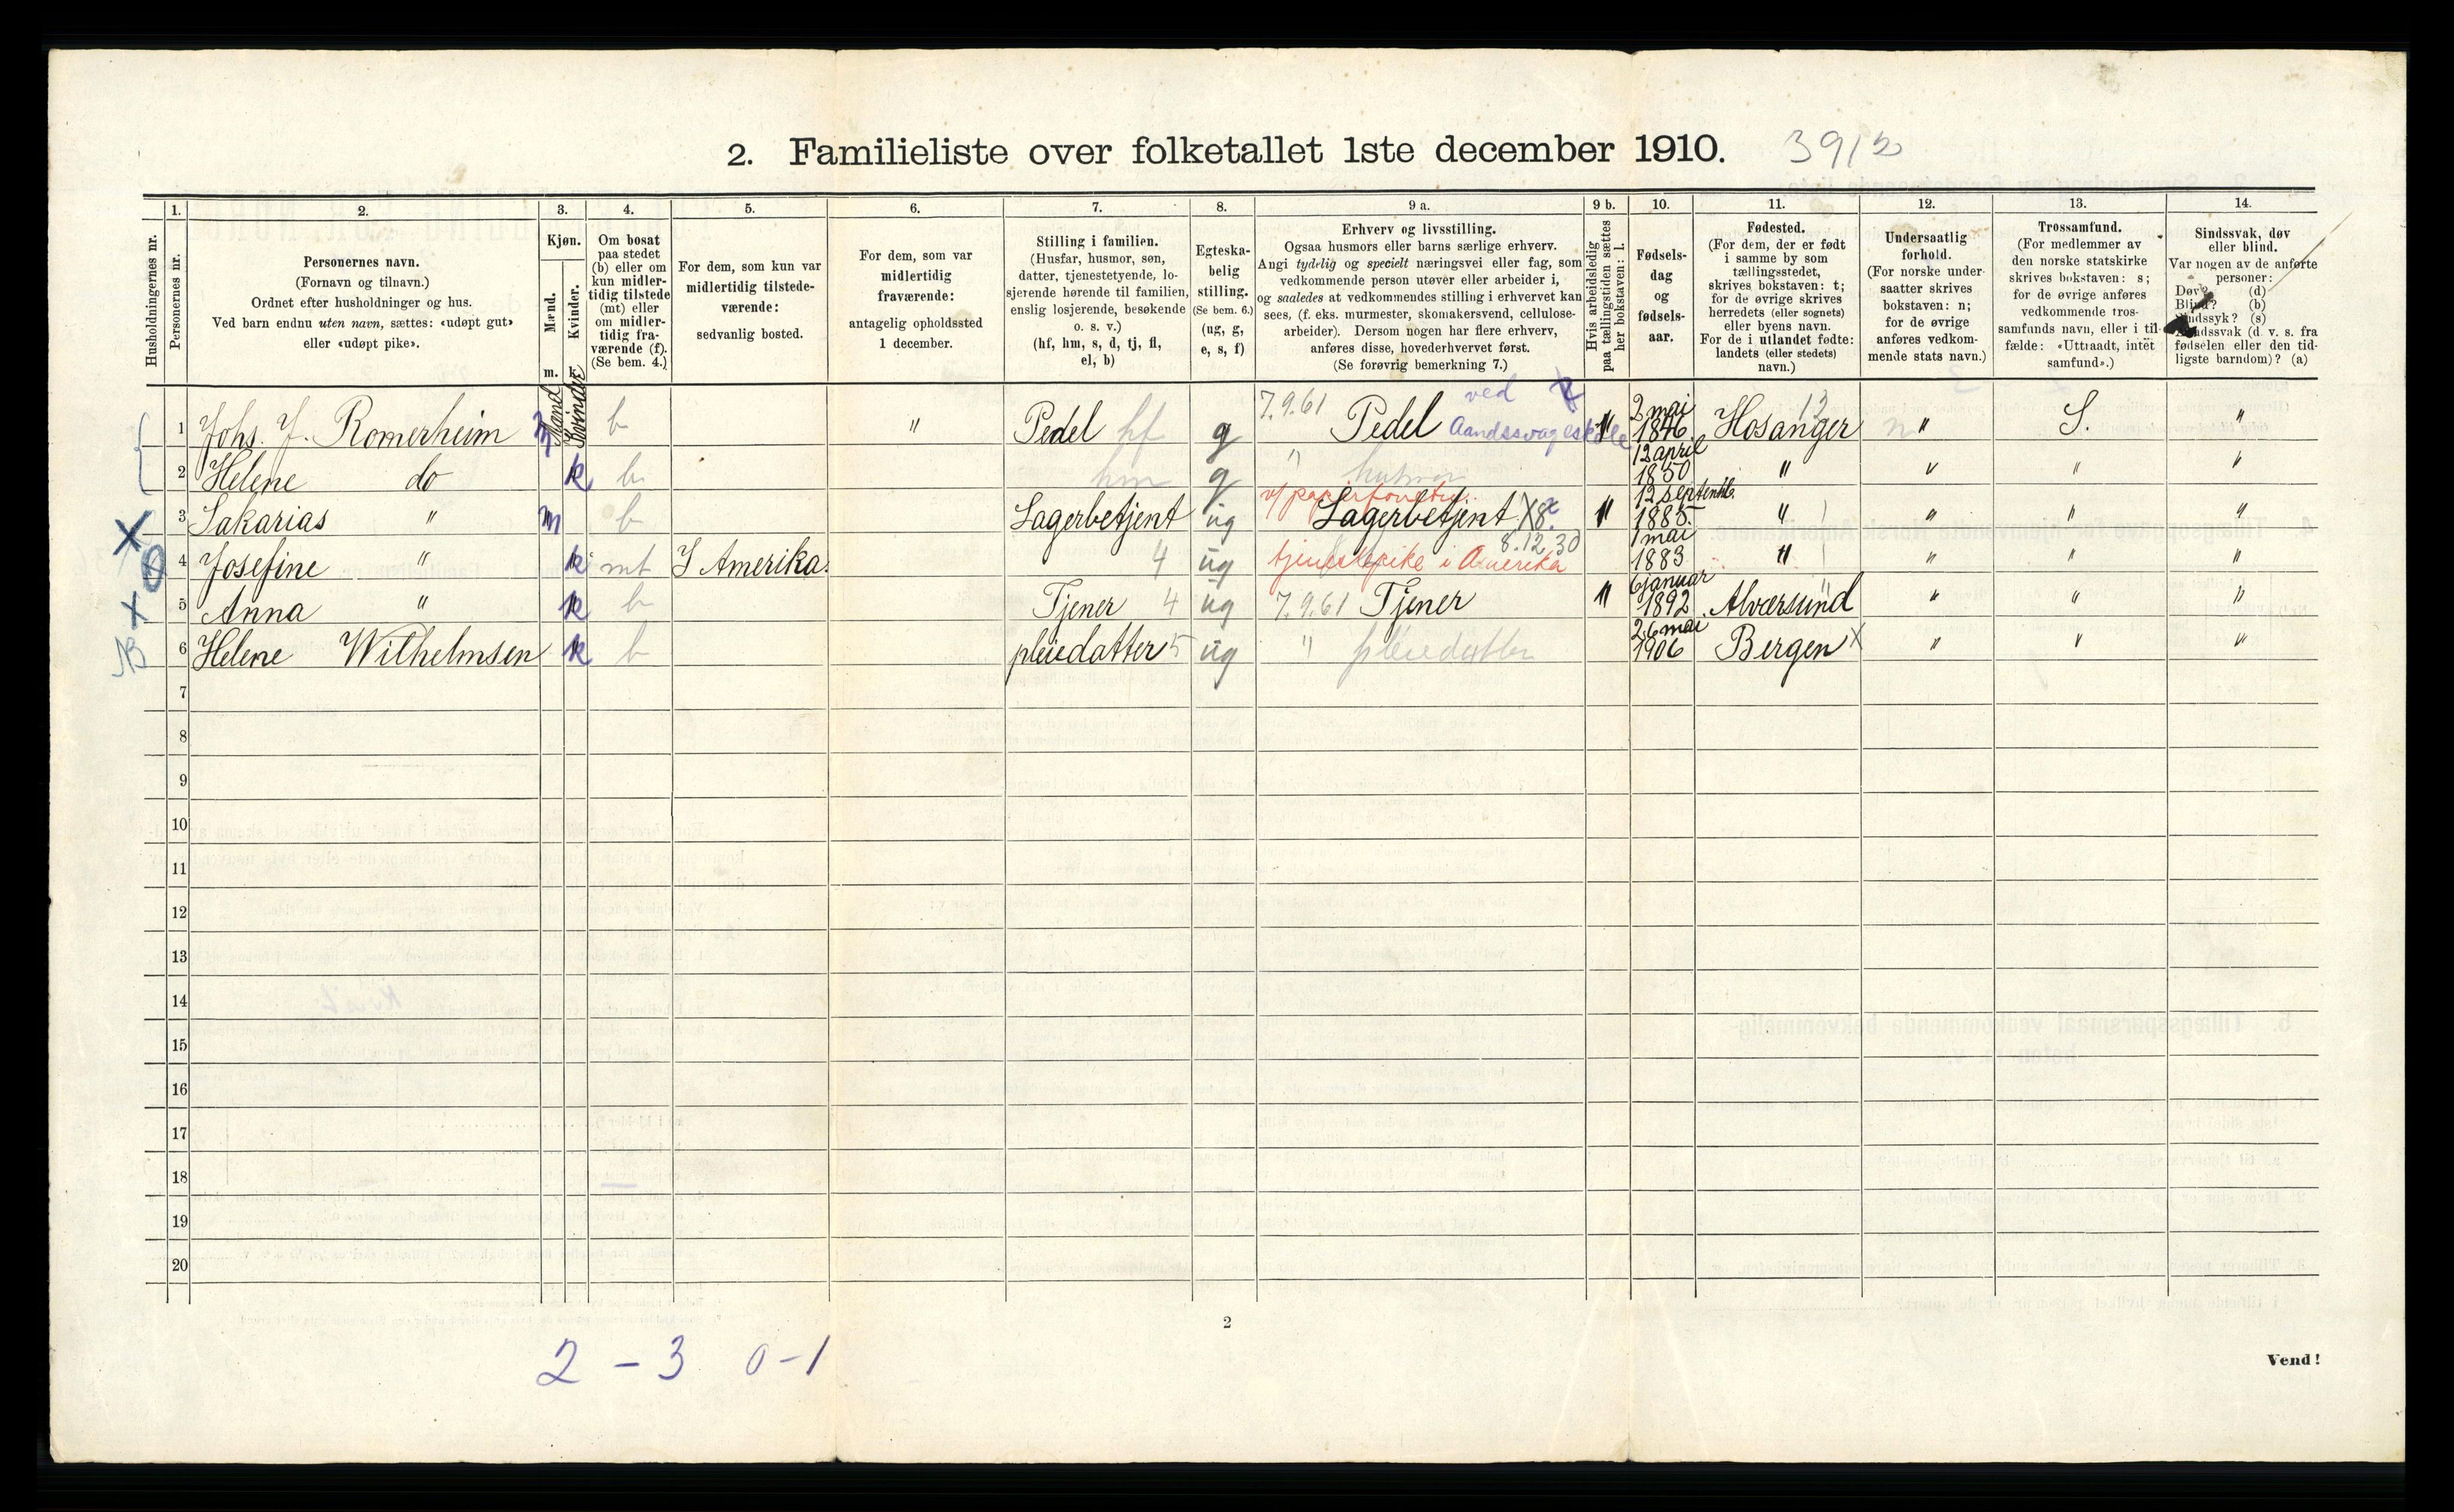 2. Familieliste over folketallet 1ste december 1910. 3912
1. 2. 3. 4. 5. 6. 7. 8. 9 a. 9 b. 10. 11. 12. 13. 14.
Husholdningernes nr.
Personernes nr.
Personernes navn.
(Fornavn og tilnavn.)
Ordnet efter husholdninger og hus.
Ved barn endnu uten navn, sættes: «udøpt gut»
eller «udøpt pike».
Kjøn.
Mænd.
Kvinder.
m. k.
Om bosat
paa stedet
(b) eller om
kun midler-
tidig tilstede
(mt) eller
om midler-
tidig fra-
værende (f).
(Se bem. 4.)
For dem, som kun var
midlertidig tilstede-
værende:
sedvanlig bosted.
For dem, som var
midlertidig
fraværende:
antagelig opholdssted
1 december.
Stilling i familien.
(Husfar, husmor, søn,
datter, tjenestetyende, lo-
sjerende hørende til familien,
enslig losjerende, besøkende
o. s. v.)
(hf, hm, s, d, tj, fl,
el, b)
Egteska-
belig
stilling.
(Se bem. 6.)
(ug, g,
e, s, f)
Erhverv og livsstilling.
Ogsaa husmors eller barns særlige erhverv.
Angi tydelig og specielt næringsvei eller fag, som
vedkommende person utøver eller arbeider i,
og saaledes at vedkommendes stilling i erhvervet kan
sees, (f. eks. murmester, skomakersvend, cellulose-
arbeider). Dersom nogen har flere erhverv,
anføres disse, hovederhvervet først.
(Se forøvrig bemerkning 7.)
Hvis arbeidsledig
paa tællingstiden sættes
her bokstaven: l.
Fødsels-
dag
og
fødsels-
aar.
Fødested.
(For dem, der er født
i samme by som
tællingsstedet,
skrives bokstaven: t;
for de øvrige skrives
herredets (eller sognets)
eller byens navn.
For de i utlandet fødte:
landets (eller stedets)
navn.)
Undersaatlig
forhold.
(For norske under-
saatter skrives
bokstaven: n;
for de øvrige
anføres vedkom-
mende stats navn.)
Trossamfund.
(For medlemmer av
den norske statskirke
skrives bokstaven: s;
for de øvrige anføres
vedkommende tros-
samfunds navn, eller i til-
fælde: «Uttraadt, intet
samfund».)
Sindssvak, døv
eller blind.
Var nogen av de anførte
personer:
Døv? (d)
Blind? (b)
Sindssyk? (s)
Aandssvak (d. v. s. fra
fødselen eller den tid-
ligste barndom)? (a)
Mænd Kvinder
1 Johs. J. Romerheim m b " Pedel hf g 7.9.61 Pedel ved Aandssvageskole 2 mai 1846 Hosanger 12 n " S. "
2 Helene do k b hm g " husmor 12 april 1850 " " " "
3 Sakarias " m b Lagerbetjent ug Lagerbetjent 12 septembr. 1885. " " " "
4 Josefine " k mt I Amerika. 4 ug tjenestepike i Amerika 8.12.30 1 mai 1883 " " " "
5 Anna " k b Tjener 4 ug 7.9.61 Tjener 6 januar 1892 Alværsund " " "
6 Helene Wilhelmsen k b pleiedatter 5 ug " pleiedatter 26 mai 1906 Bergen x " " "
7
8
9
10
11
12
13
14
15
16
17
18
19
20
2
2 - 3 0-1
Vend!